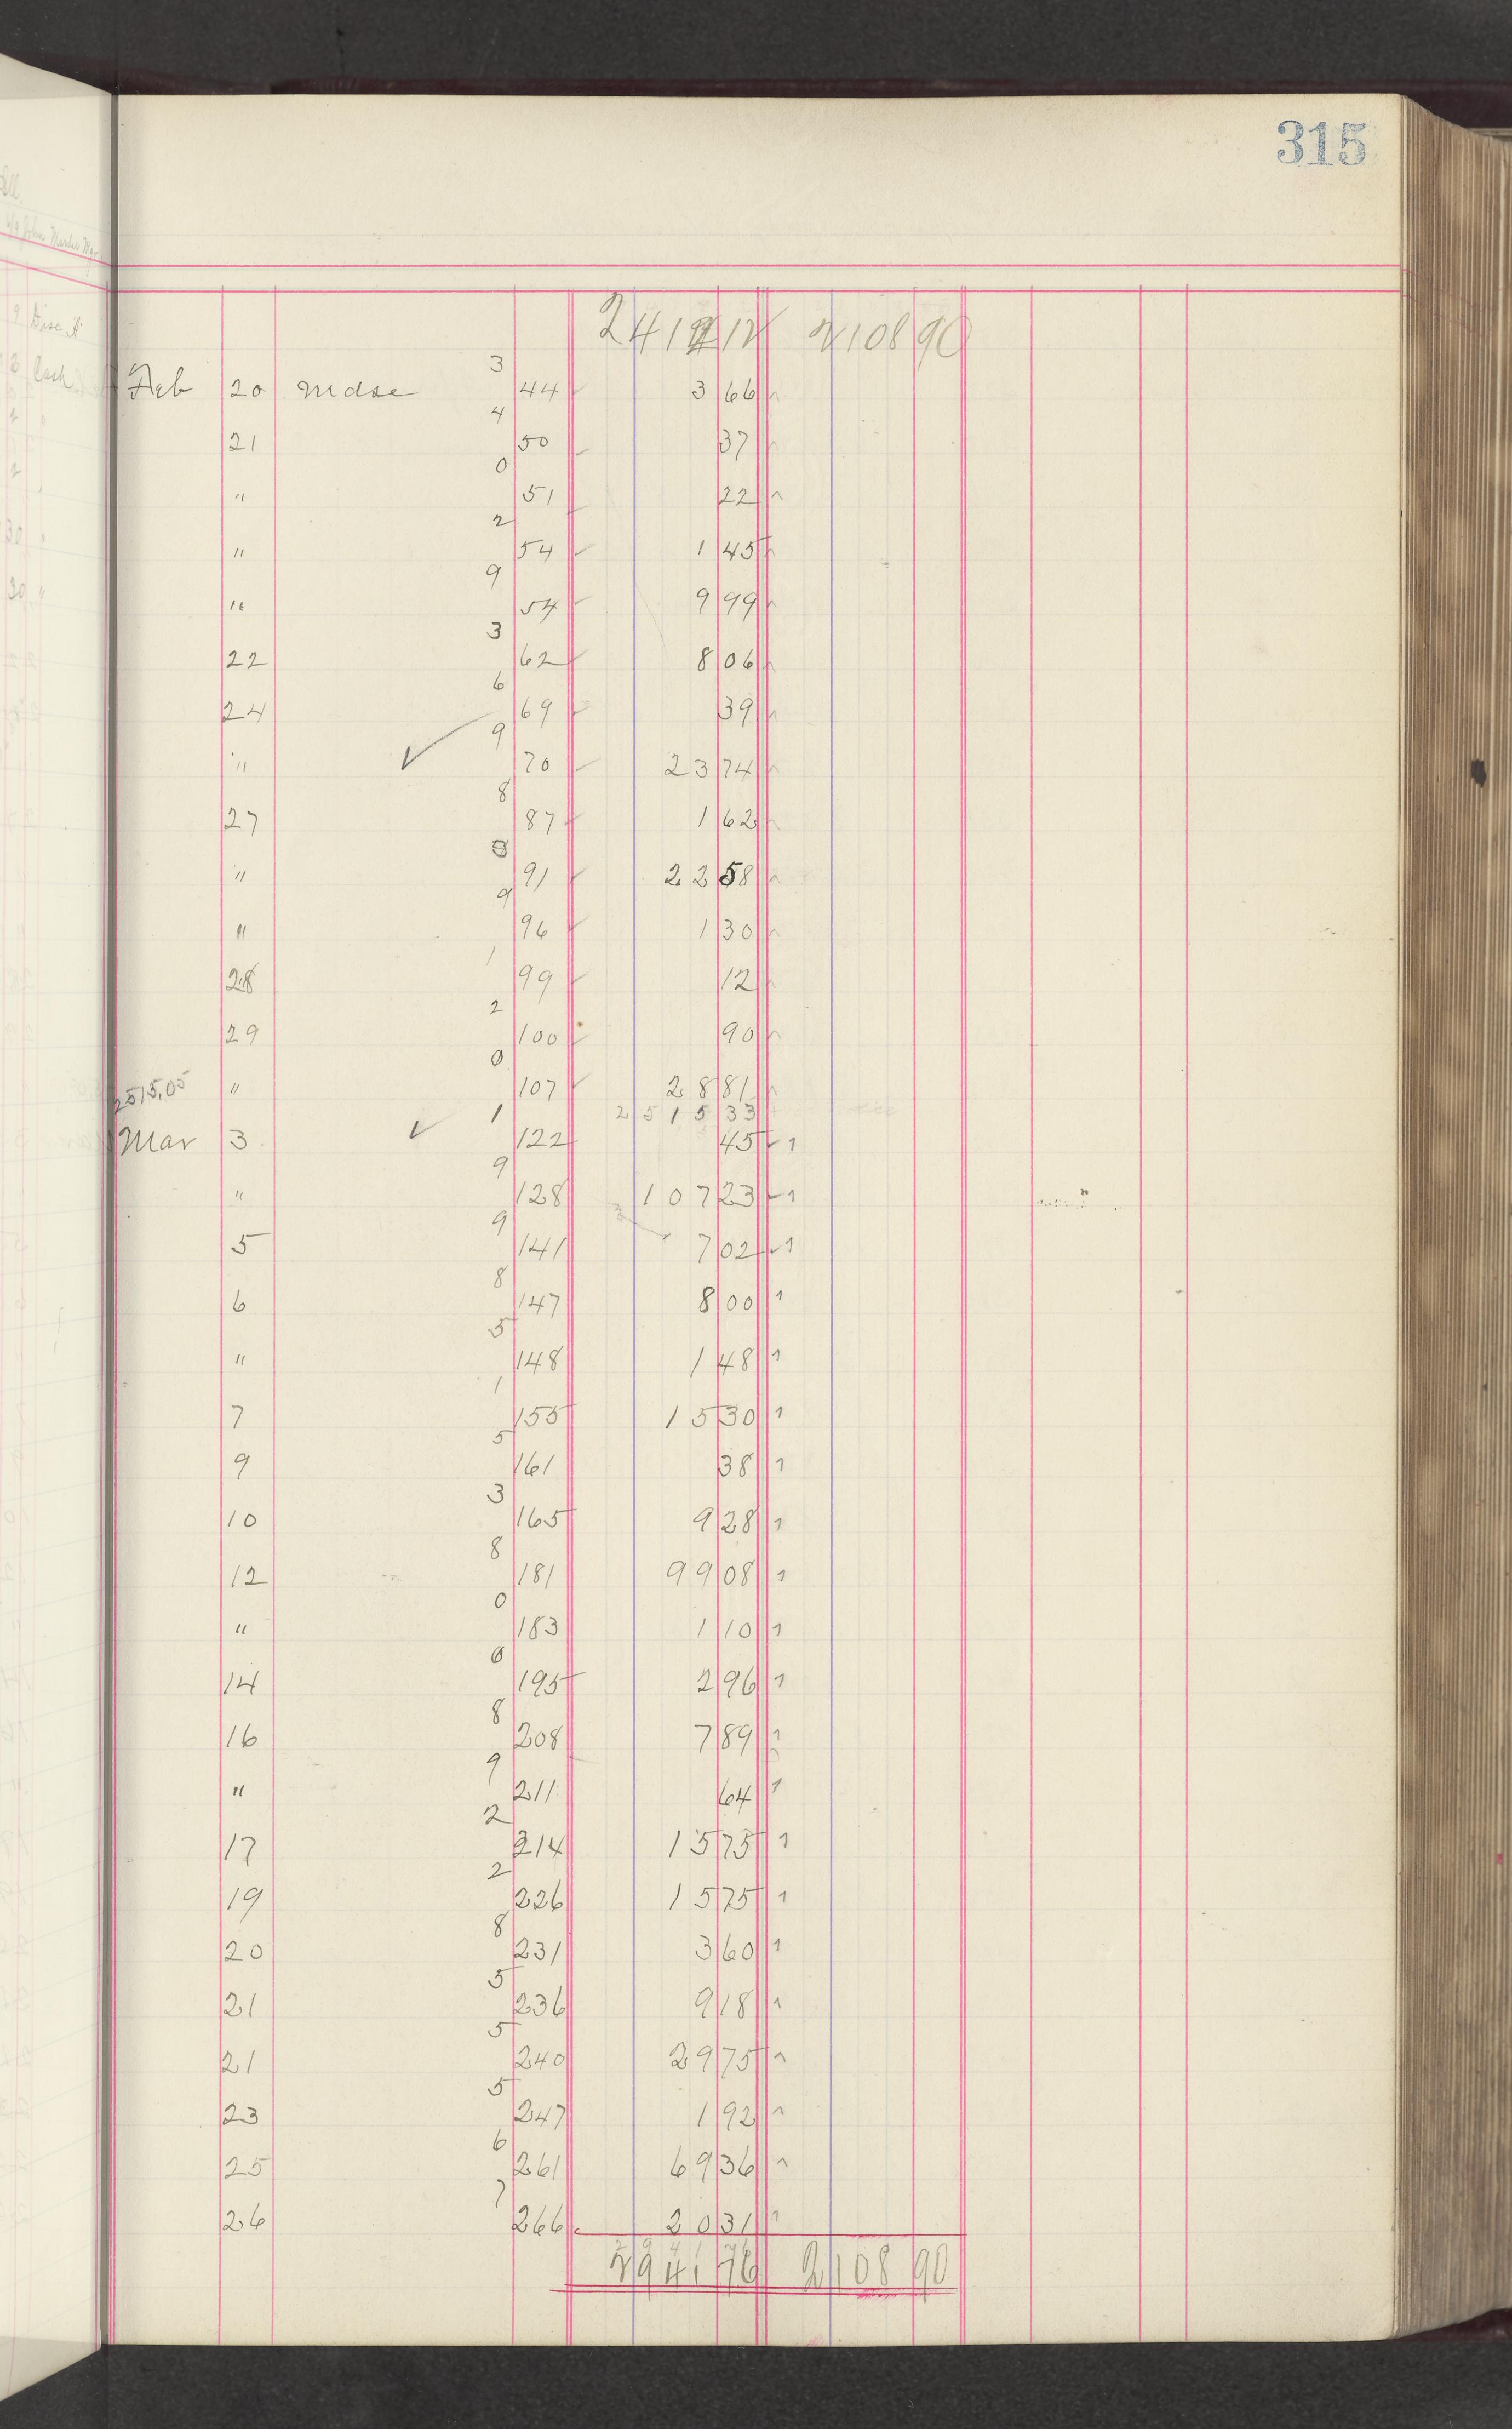 315
2412 12 2108 90
3
Feb 20 Mdse 44 3 66
4
21 50 37
0
" 51 22
2
" 54 1 45
9
" 54 9 99
3
22 62 8 06
6
24 69 39
9
" 70 23 74
8
27 87 1 62
" 91 22 58
9
" 96 1 30
1
28 99 12
2
29 100 90
0
2515.05 " 107 28 81
1 2515 33
Mar 3 122 45
9
" 128 107 23
9
5 141 7 02
8
6 147 8 00
5
" 148 1 48
1
7 155 15 30
5
9 161 38
3
10 165 9 28
8
12 181 99 08
0
" 183 1 10
6
14 195 2 96
8
16 208 7 89
9
" 211 64
2
17 214 15 75
2
19 226 15 75
8
20 231 3 60
5
21 236 9 18
5
21 240 29 75
5
23 247 1 92
6
25 261 69 36
7
26 266 20 31
2941 76 2108 90